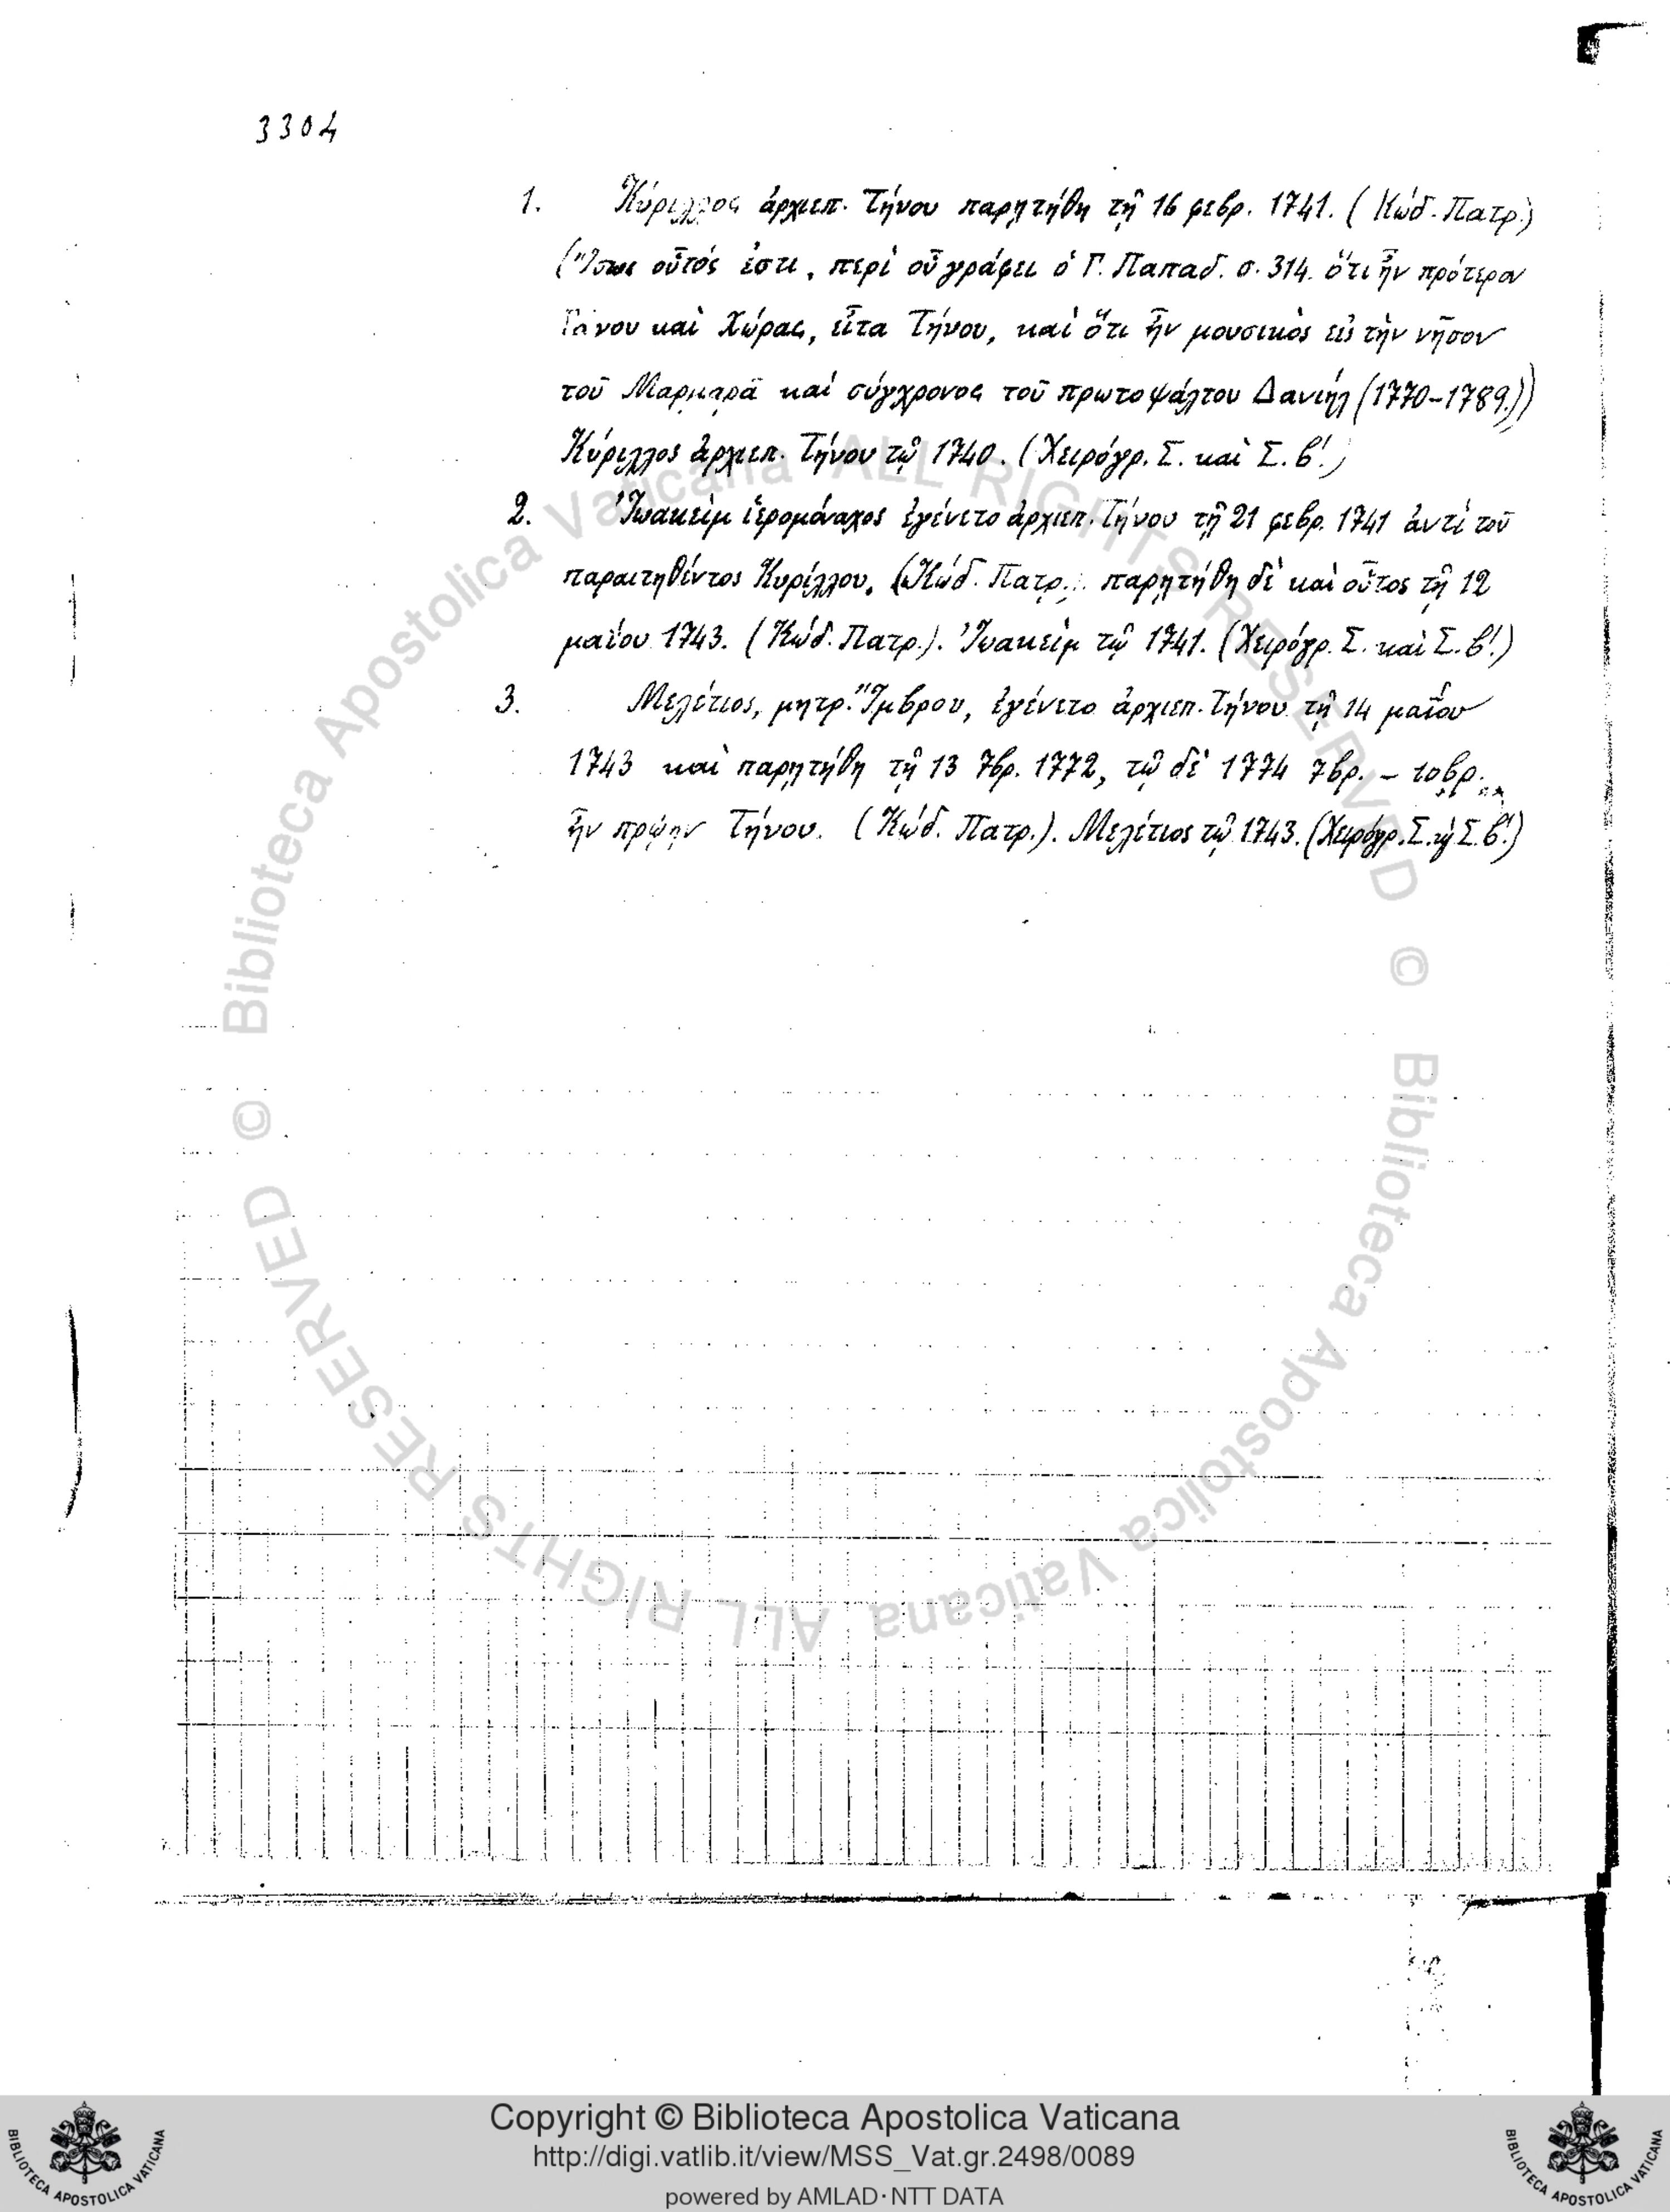 3304
1. Κύριλλος ἀρχιεπ. Τήνου παρῃτήθη τῇ 16 φεβρ. 1741. (Κώδ. Πατρ.)
(Ἴσως οὗτός ἐστι, περὶ οὗ γράφει ὁ Γ. Παπαδ. σ. 314. ὅτι ἦν πρότερον
Γάνου καὶ Χώρας, εἶτα Τήνου, καὶ ὅτι ἦν μουσικὸς εἰς τὴν νῆσον
τοῦ Μαρμαρᾶ καὶ σύγχρονος τοῦ πρωτοψάλτου Δανιήλ (1770-1789.))
Κύριλλος ἀρχιεπ. Τήνου τῷ 1740. (Χειρόγρ. Σ. καὶ Σ. β'.)
2. Ἰωακεὶμ ἱερομόναχος ἐγένετο ἀρχιεπ. Τήνου τῇ 21 φεβρ. 1741 ἀντὶ τοῦ
παραιτηθέντος Κυρίλλου. (Κώδ. Πατρ.). παρῃτήθη δὲ καὶ οὗτος τῇ 12
μαΐου 1743. (Κώδ. Πατρ.). Ἰωακεὶμ τῷ 1741. (Χειρόγρ. Σ. καὶ Σ. β'.)
3. Μελέτιος, μητρ. Ἴμβρου, ἐγένετο ἀρχιεπ. Τήνου τῇ 14 μαΐου
1743 καὶ παρῃτήθη τῇ 13 7βρ. 1772, τῷ δὲ 1774 7βρ. – 10βρ.
ἦν πρώην Τήνου. (Κώδ. Πατρ.). Μελέτιος τῷ 1743. (Χειρόγρ. Σ. ϗ Σ. β'.)
© Biblioteca Apostolica Vaticana ALL RIGHTS RESERVED
© Biblioteca Apostolica Vaticana ALL RIGHTS RESERVED
Copyright © Biblioteca Apostolica Vaticana
http://digi.vatlib.it/view/MSS_Vat.gr.2498/0089
powered by AMLAD·NTT DATA
BIBLIOTECA APOSTOLICA VATICANA
BIBLIOTECA APOSTOLICA VATICANA